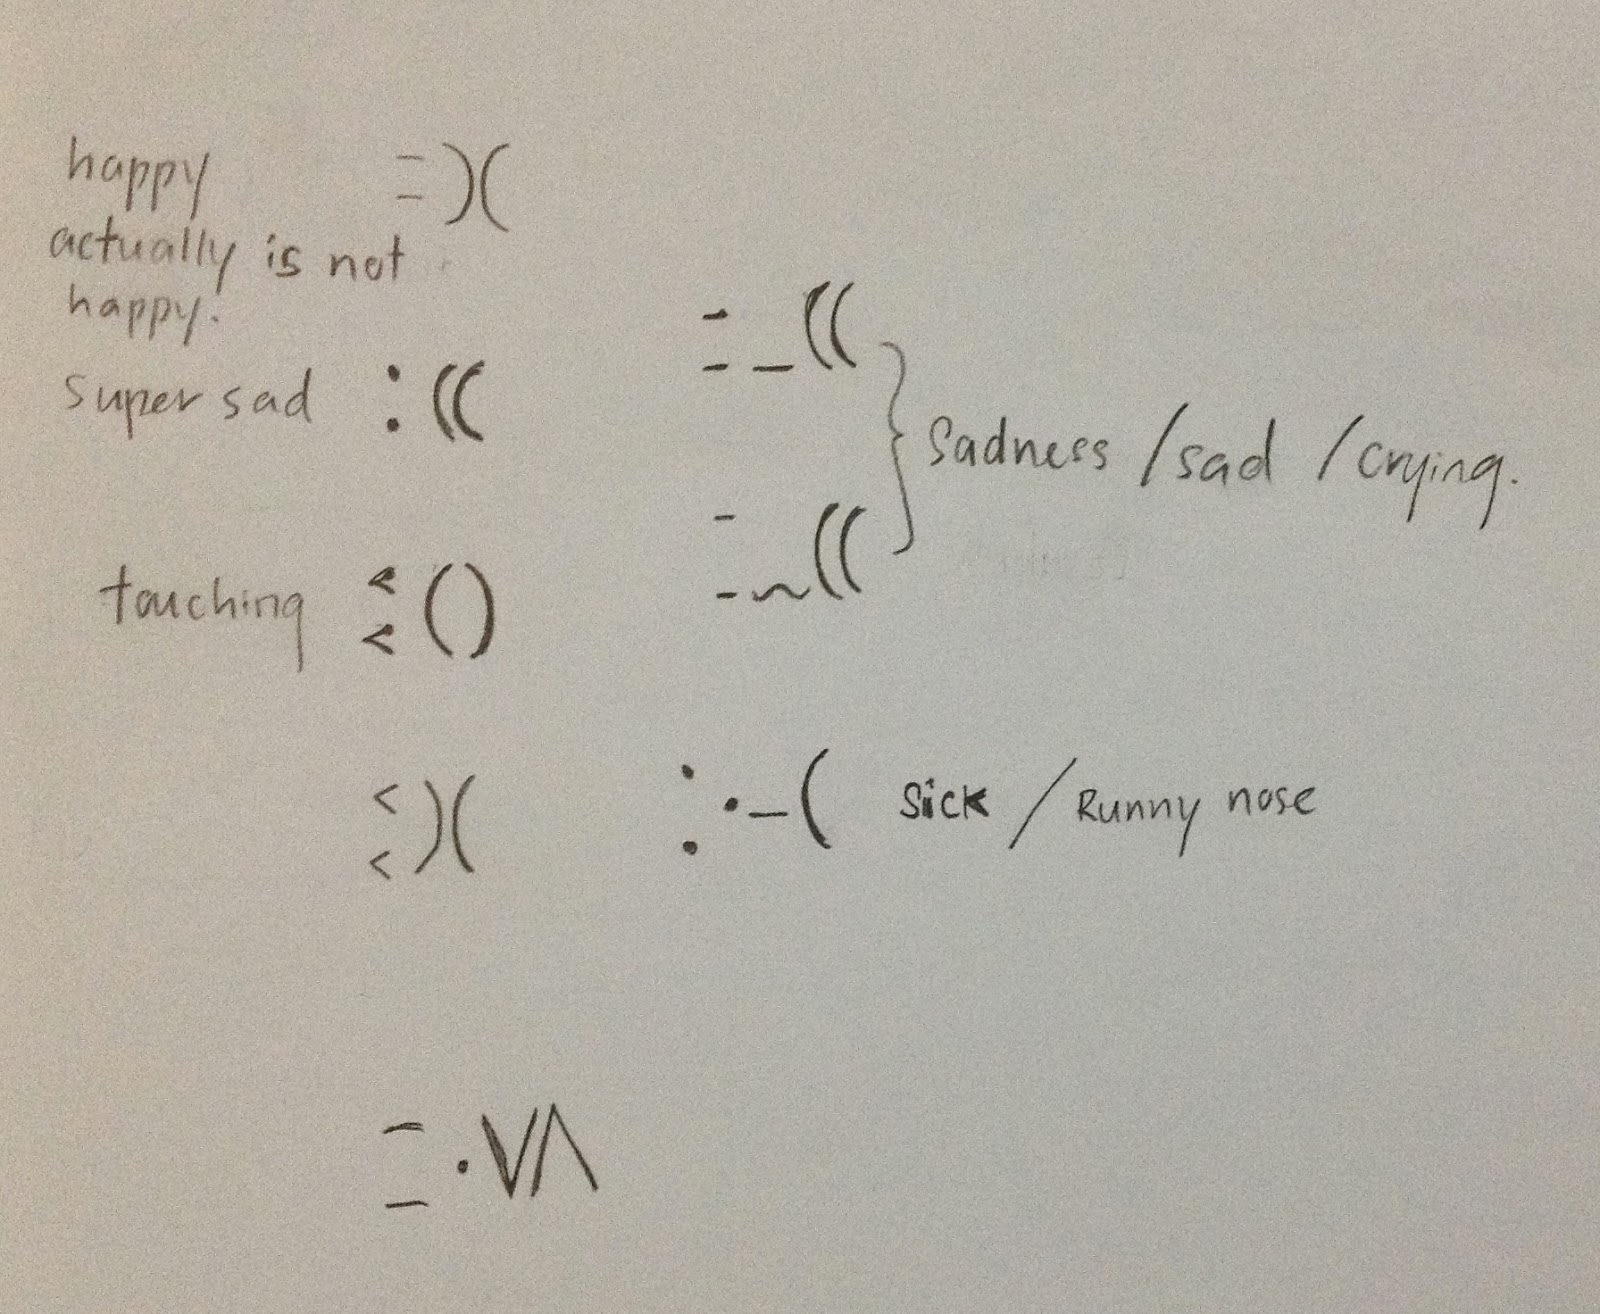 happy =)(
actually is not
happy.
=_((
super sad :((
Sadness / sad / crying.
=~((
touching <
< ()
<
< )(
:·-( Sick / Runny nose
=·V/\